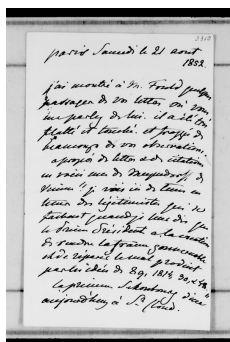 paris Samedi le 21 aout
1852.
j'ai montré à M. Fould quelques
passages de vos lettres où vous
me parlez de lui. il a été très
flatté et touché. et frappé de
beaucoup de vos observations.
a propos de lettres et de citations
en voici une de
Vienne "je vois ici de tems en
tems des légitimistes qui se
fachent quand je leur dis que
le Prince Président a la mission
de rendre la france gouvernable
et de réparer le mal produit
par les idées de 89, 1814, 30, et 48."
la princesse Schonbourg dine
aujourd'hui à St Cloud.